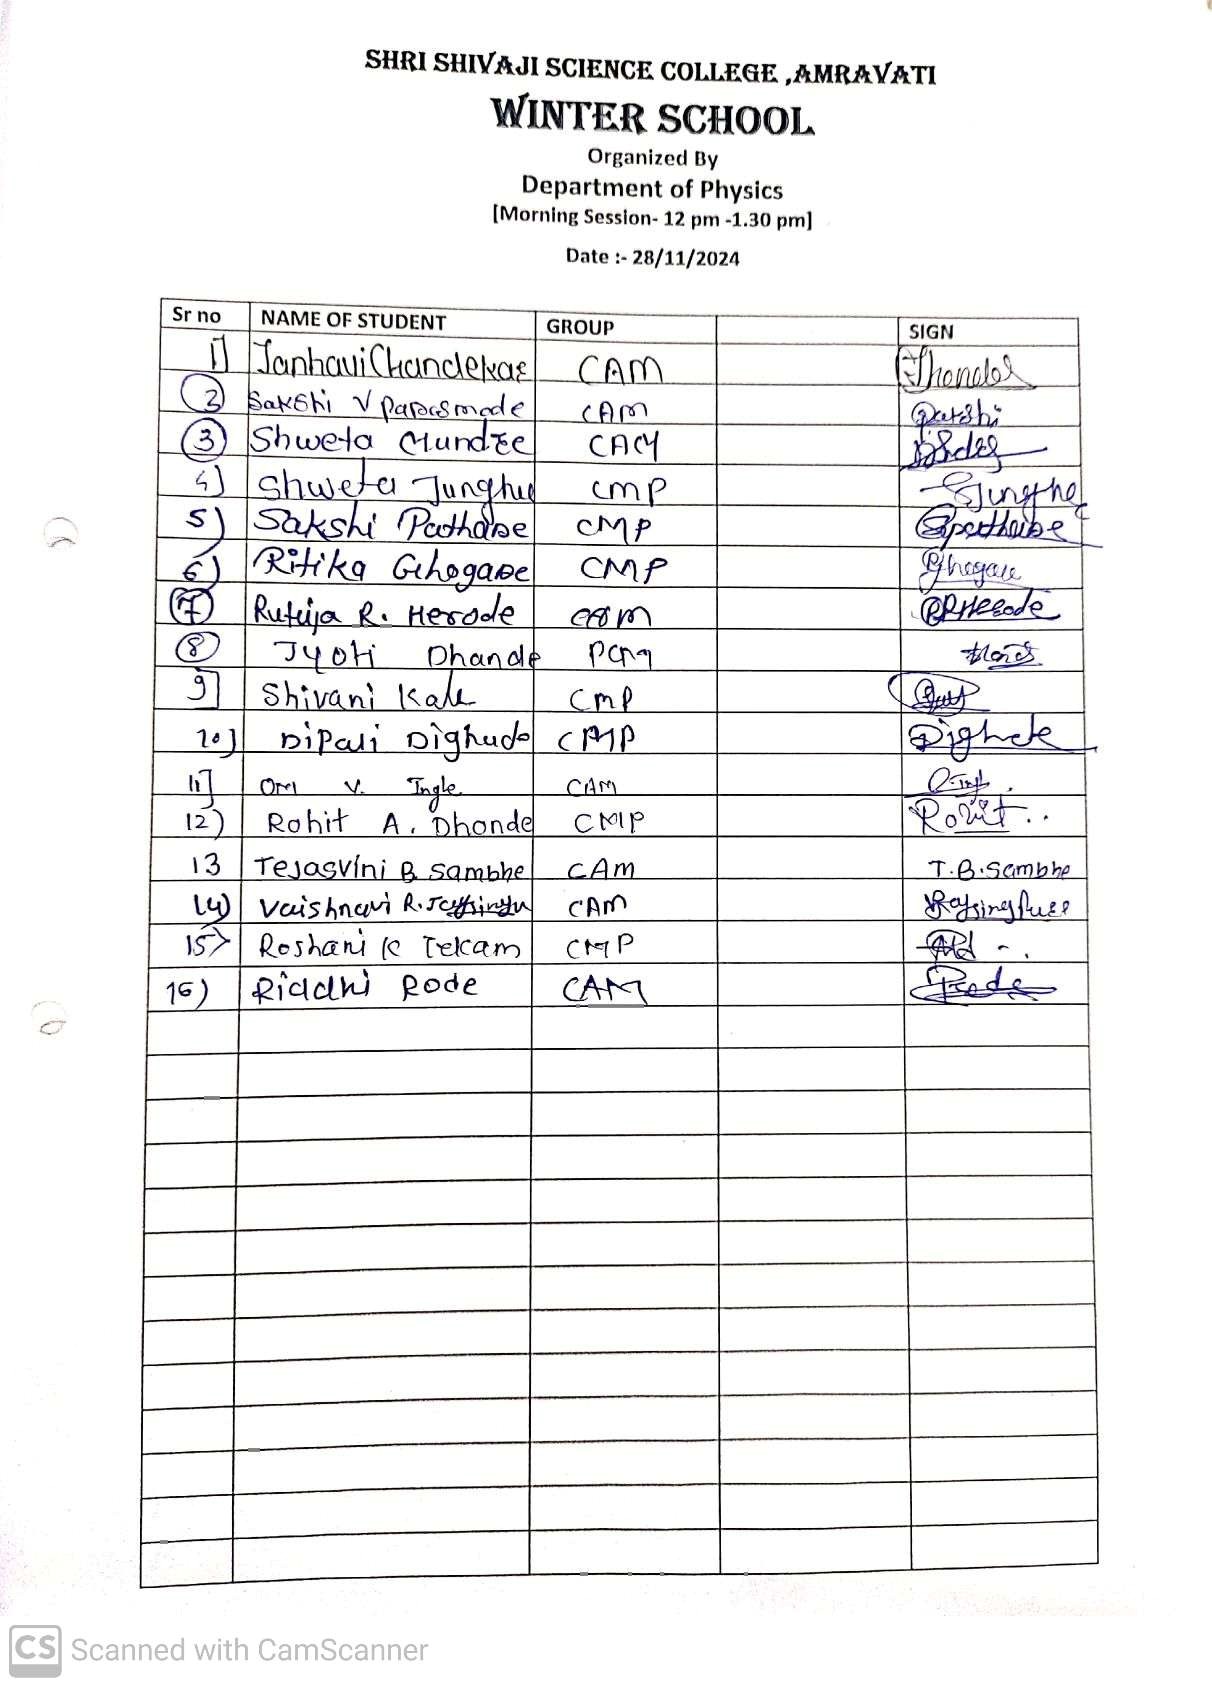 SHRI SHIVAJI SCIENCE COLLEGE ,AMRAVATI
WINTER SCHOOL
Organized By
Department of Physics
[Morning Session- 12 pm -1.30 pm]
Date :- 28/11/2024
Sr no NAME OF STUDENT GROUP SIGN
1] Janhavi Chandekar CAM
2 Sakshi V CAM
3 Shweta Mundre CAM
4) Shweta Junghe CMP Sjunghe
5) Sakshi Pathare CMP Spathare
6) Ritika Ghogare CMP Ghogare
7 Rutuja R. Herode CAM RRHerode
8 Jyoti Dhande PCM
9] Shivani Kale CMP
10) Dipali Dighade CMP
11] Om V. Ingle CAM
12) Rohit A. Dhonde CMP Rohit..
13 Tejasvini B Sambhe CAM T.B.Sambhe
14) Vaishnavi R. CAM
15) Roshani K Tekam CMP
16) Riddhi Rode CAM Rode
CS Scanned with CamScanner